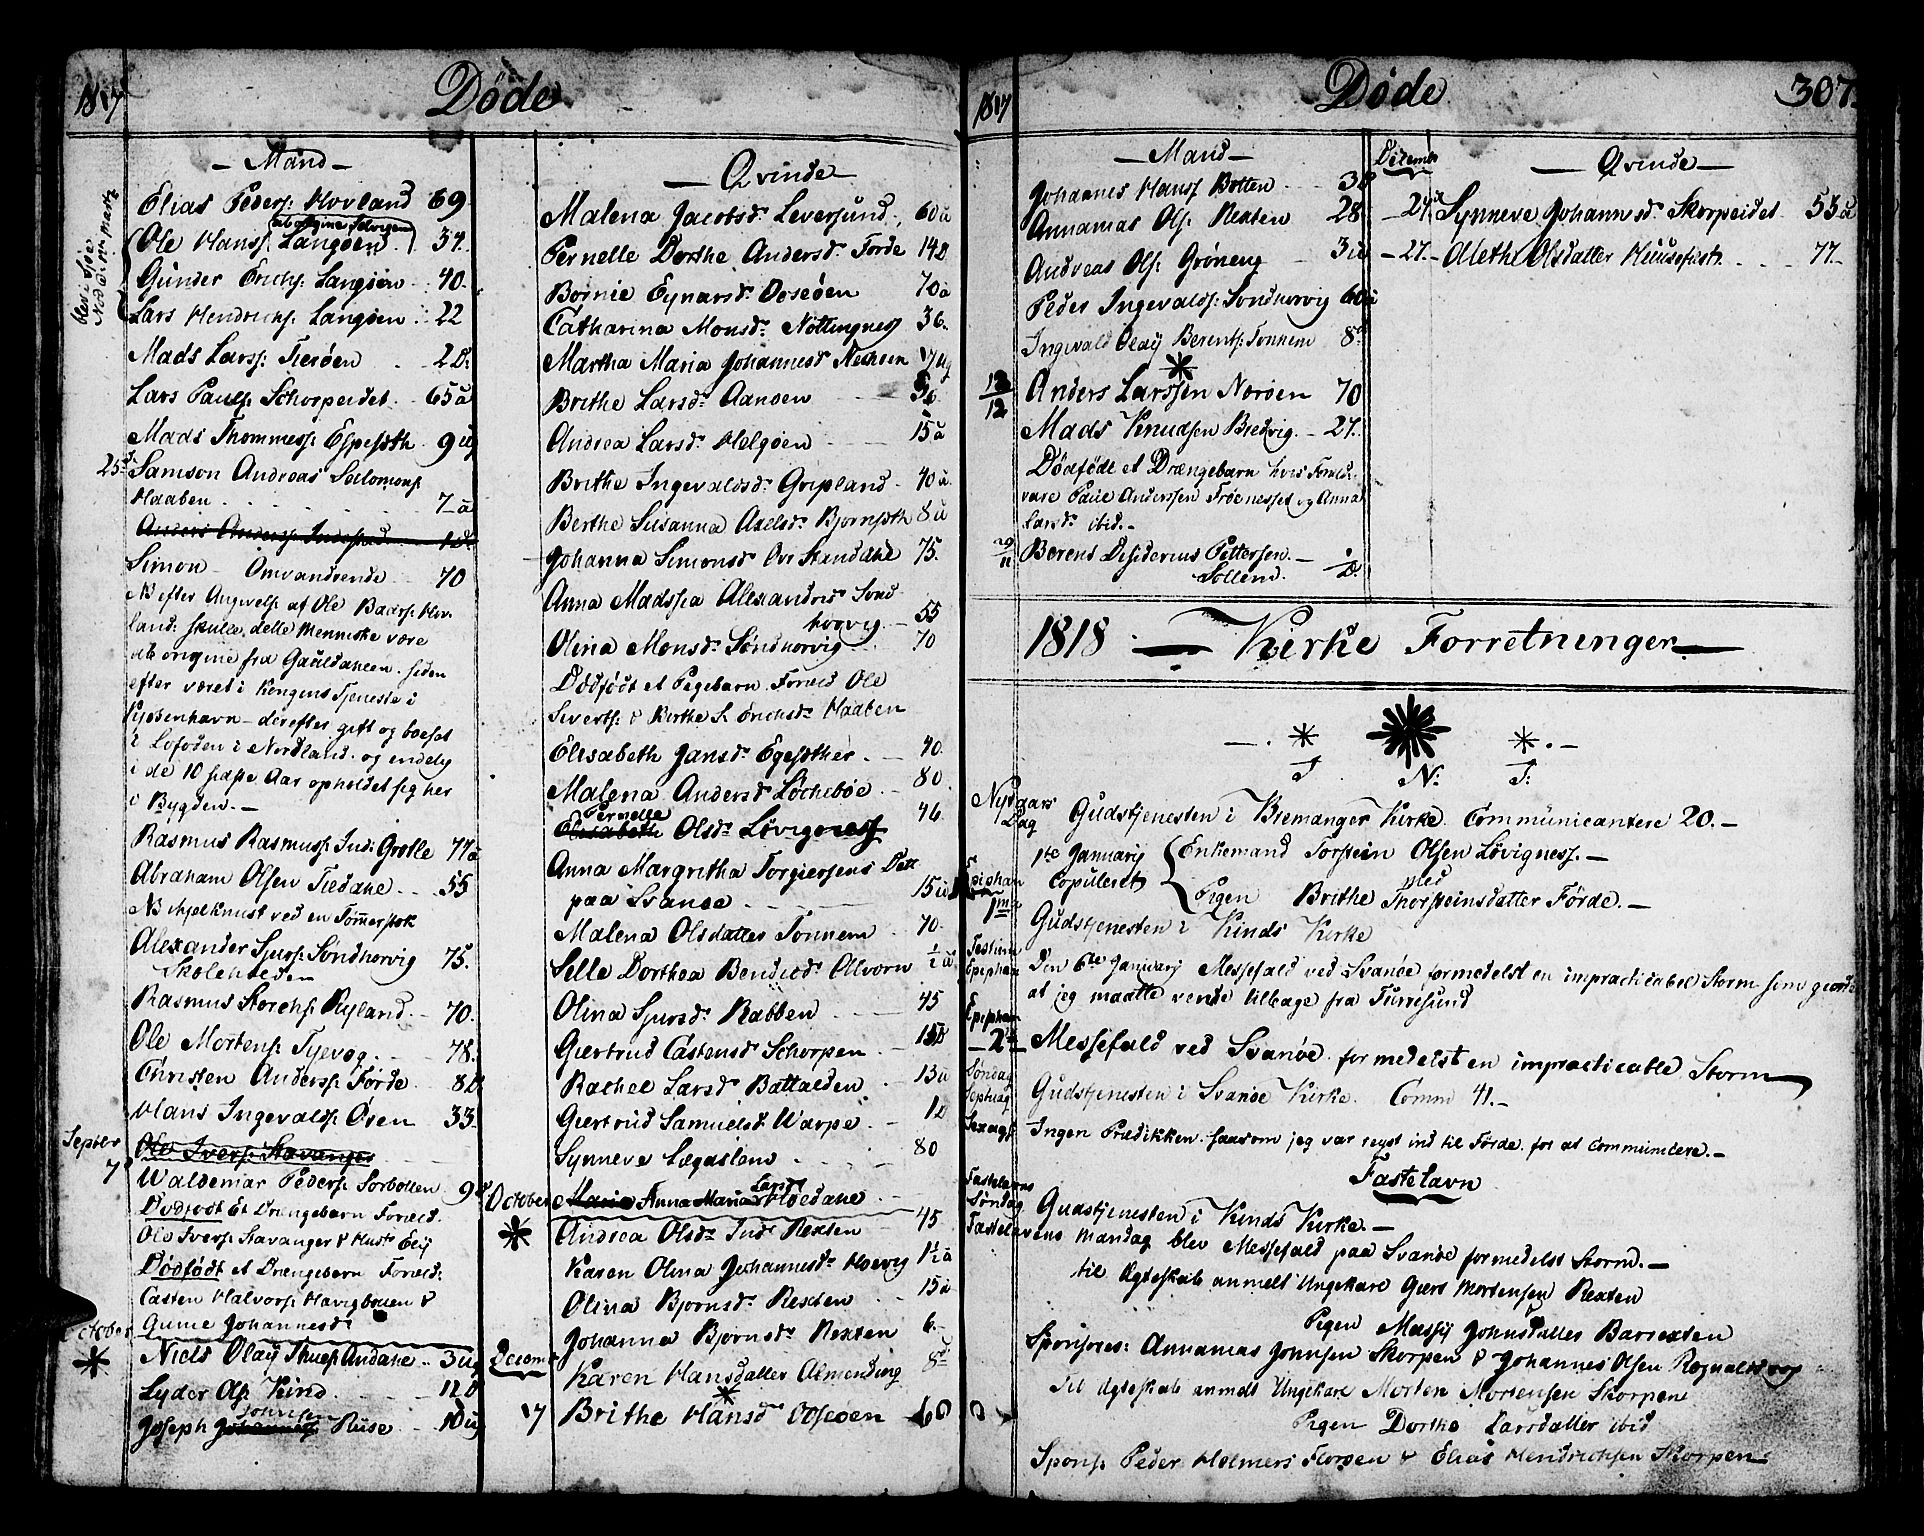 1817 Døde
Mand
Elias Peders: Hovland 69
ab origine Solvigen
Ole Hans: Langøen 34.
Gunder Erichs: Langøen 40.
Lars Hendrichs: Langøen 22
blev i Siøe
Mads Lars: Tierøen 2 D.
Lars Pauls: Schorpeidet 65 a
Mads Thommes: Espesæth 9 ug
25 Samson Andreas Salomons:
Haaben 7 a
Simon Omvandrende 70
NB efter Angivelse af Ole Baars: Hov-
land: skulle dette Menniske være
ab origine fra Gauldalen. siden
efter været i Kongens Tjeneste i
Kjøbenhavn - derefter gift og boesat
i Lofoden i Nordland. og endelig
i de 10 sidste Aar opholdet sig her
i Bygden.
Rasmus Rasmus: Ind: Grotle 77 a
Abraham Olsen Tiedahe 55
NB ihjelknust ved en Tømmerstok
Alexander Sjurs: Søndhorvig 75.
Skoleholder
Rasmus Storchs: Ryland 70.
Ole Mortens: Tyevog 78.
Christen Anders: Førde 8 D
Hans Ingevalds: Osen 33.
Septbr Ole Ivers: Stavanger
7 Waldemar Peders: Sorbotten 9
Dødfødt Et Drengebarn Foreld.
Ole Ivers: Stavanger & Hust: Elij
Dødfødt et Drengebarn Foreld:
Casten Halvors: Havigbotten &
Gunie Johannesdr
October
Niels Olaij Thues: Andahe 3 ug
Lyder Ols: Kind 12 D
Joseph Johnsen Ruse 10 ug
Qvinde
Malena Jacobsdr Leversund 60 a
Pernelle Dorthe Andersdr Førde 14 D
Bornie Eynarsdr Doseøen 70 a
Catharina Monsdr Nøttingnes 36.
Martha Maria Johannesdr Nekøen 7 ug
Brithe Larsdr Aansen 56
Andrea Larsdr Helgøen 15 a
Brithe Ingevaldsdr Gripland 40 a
Berthe Susanna Axelsdr Bjornsæth 8 u
Johanna Simonsdr Ovr Standahl 75.
Anna Madsdtr Alexandris Sønd
horvig 55
Olina Monsdr Søndhorvig 70
Dødfødt et Pigebarn. Foreld Ole
Siverts: & Birthe S. Erichsdr Haaben
Elisabeth Jansdr Egesæther 40.
Malena Andersdr Løchebøe 80
Pernelle
Elisabeth Olsdr Løvignes 46
Anna Margritha Torgiersens Datt
paa Svanøe 15
Malena Olsdatter Tonnem 70.
Selle Dorthea Bendixdr Alvorn 1/2 a
Olina Sjursdr Rabben 45
Giertrud Castensdr Schorpen
Rachel Larsdr Battalden 13 a
Giertrud Samuelsdr Warpe 1 D
Synneve Lægdslem 80
October Maria Anna Maria Larsdr
Andrea Olsdr Ind: Rexten 45
Karen Olina Johannesdr Hoevig 1 1/2 a
Olina Bjornsdr Rexten 15 a
Johanna Bjornsdr Rexten 6
Decembr
Karen Hansdatter Almending 8
17 Brithe Hansdr Odseøen 60
1817 Døde 307.
Mand
Johannes Hans: Botten 38
Annamas Ols: Rexten 28
Andreas Ols: Grøneng 3
Peder Ingevalds: Søndhorvig 60 a
Ingevald Olaij Berents: Tonnem 8
12 Anders Larssen Norøen 70
Mads Knudsen Bredvig 27.
Dødføde et Drængebarn hvis Foreld-
rare Paul Anderssen Frøenesset og Anna
Larsdr ibid.
29/11 Berens Desiderius Pettersen
Sollend.
Dezembr Qvinde
24 Synneve Johannsdr Skorpeidet 53 a
27. Alethe Olsdatter Huusefæstr. 77
1818 Kirke Forretninger
I. N. J:
Nytaars Dag Gudstjenesten i Bremanger Kirke. Communicantere 20.
1ste Januarij Enkemand Torstein Olsen Løvigness.
Copuleret med
Pigen Brithe Thorsteinsdatter Førde.
Epiphan 1ma Gudstjenesten i Kinds Kirke
Festum Epiphan Den 6te Januarij Messefald ved Svanøe formedelst en impracticabel Storm som giorde
at jeg maatte vende tilbage fra Furresund
Epiphan 2. Messefald ved Svanøe formedelst en impracticable Storm
Søndag Septuag Gudstjenesten i Svanøe Kirke. Comm 41.
Sexages Ingen Prædikken saasom jeg var reyst ind til Førde for at Communicere.
Fastelavn
Fastelavns Søndag Gudstjenesten i Kinds Kirke.
Fastelavens Mandag blev Messefald paa Svanøe formedelst Storm.
til Ægteskab anmelt Ungekare Giert Mortensen Rexten
Pigen Massij Johnsdatter Barrexten
Sponsores: Annamas Johnsen Skorpen & Johannes Olsen Rognaldsvog
Til Ægteskab anmelt Ungekare Morten Mortensen Skorpen
Pigen Dorthe Larsdatter ibid
Spons: Peder Holmers Florøen & Elias Hendrichsen Skorpen